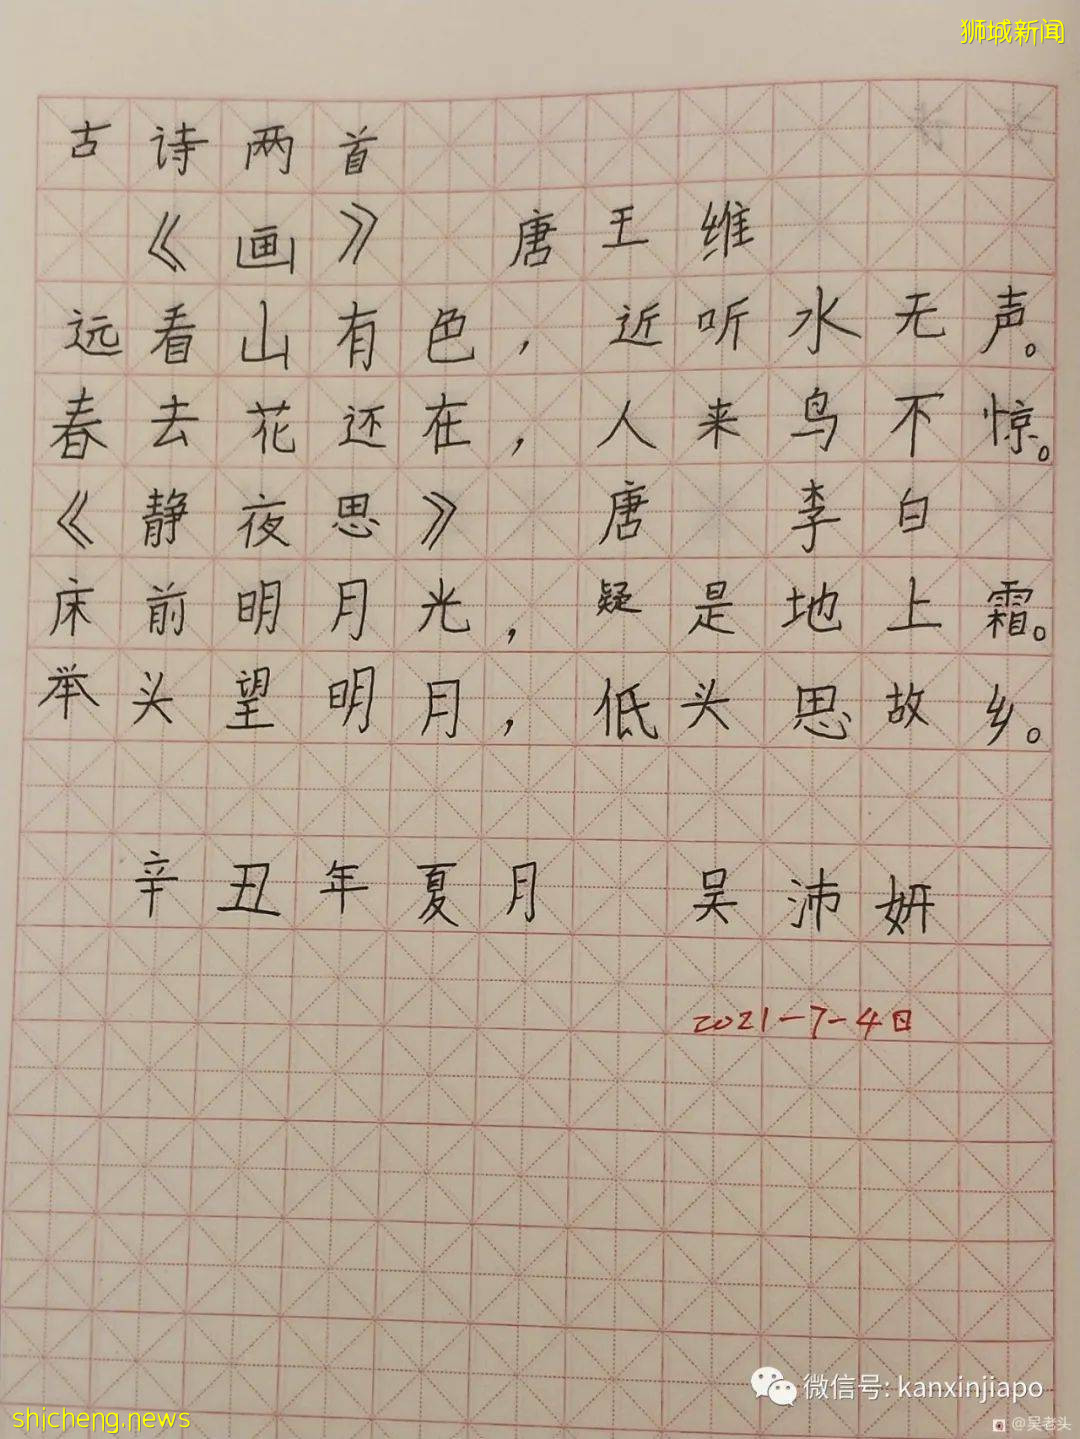 狮城新闻
古诗两首
《画》 唐王维
远看山有色，近听水无声。
春去花还在，人来鸟不惊。
《静夜思》 唐 李白
床前明月光，疑是地上霜。
举头望明月，低头思故乡。
辛丑年夏月 吴沛妍
2021-7-4日
微信号: kanxinjiapo
shicheng.news
@吴老头